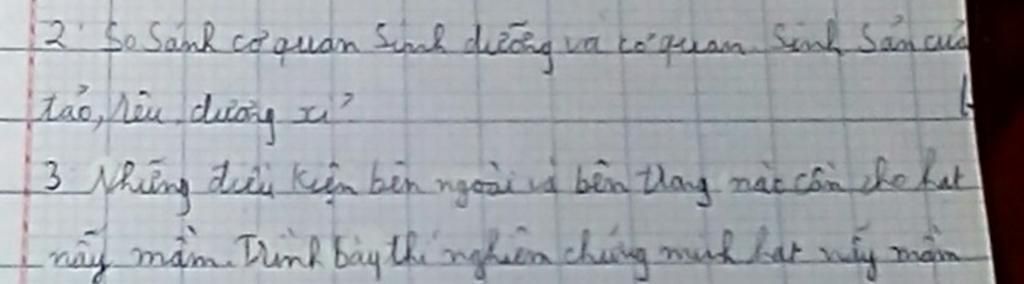 2 So Sánh cơ quan Sinh dưỡng và cơ quan Sinh Sản của
tảo, rêu, dương xỉ?
3 Những điều kiện bên ngoài và bên trong nào cần cho hạt
nãy mầm. Trình bày thí nghiên chứng minh hạt nãy mầm